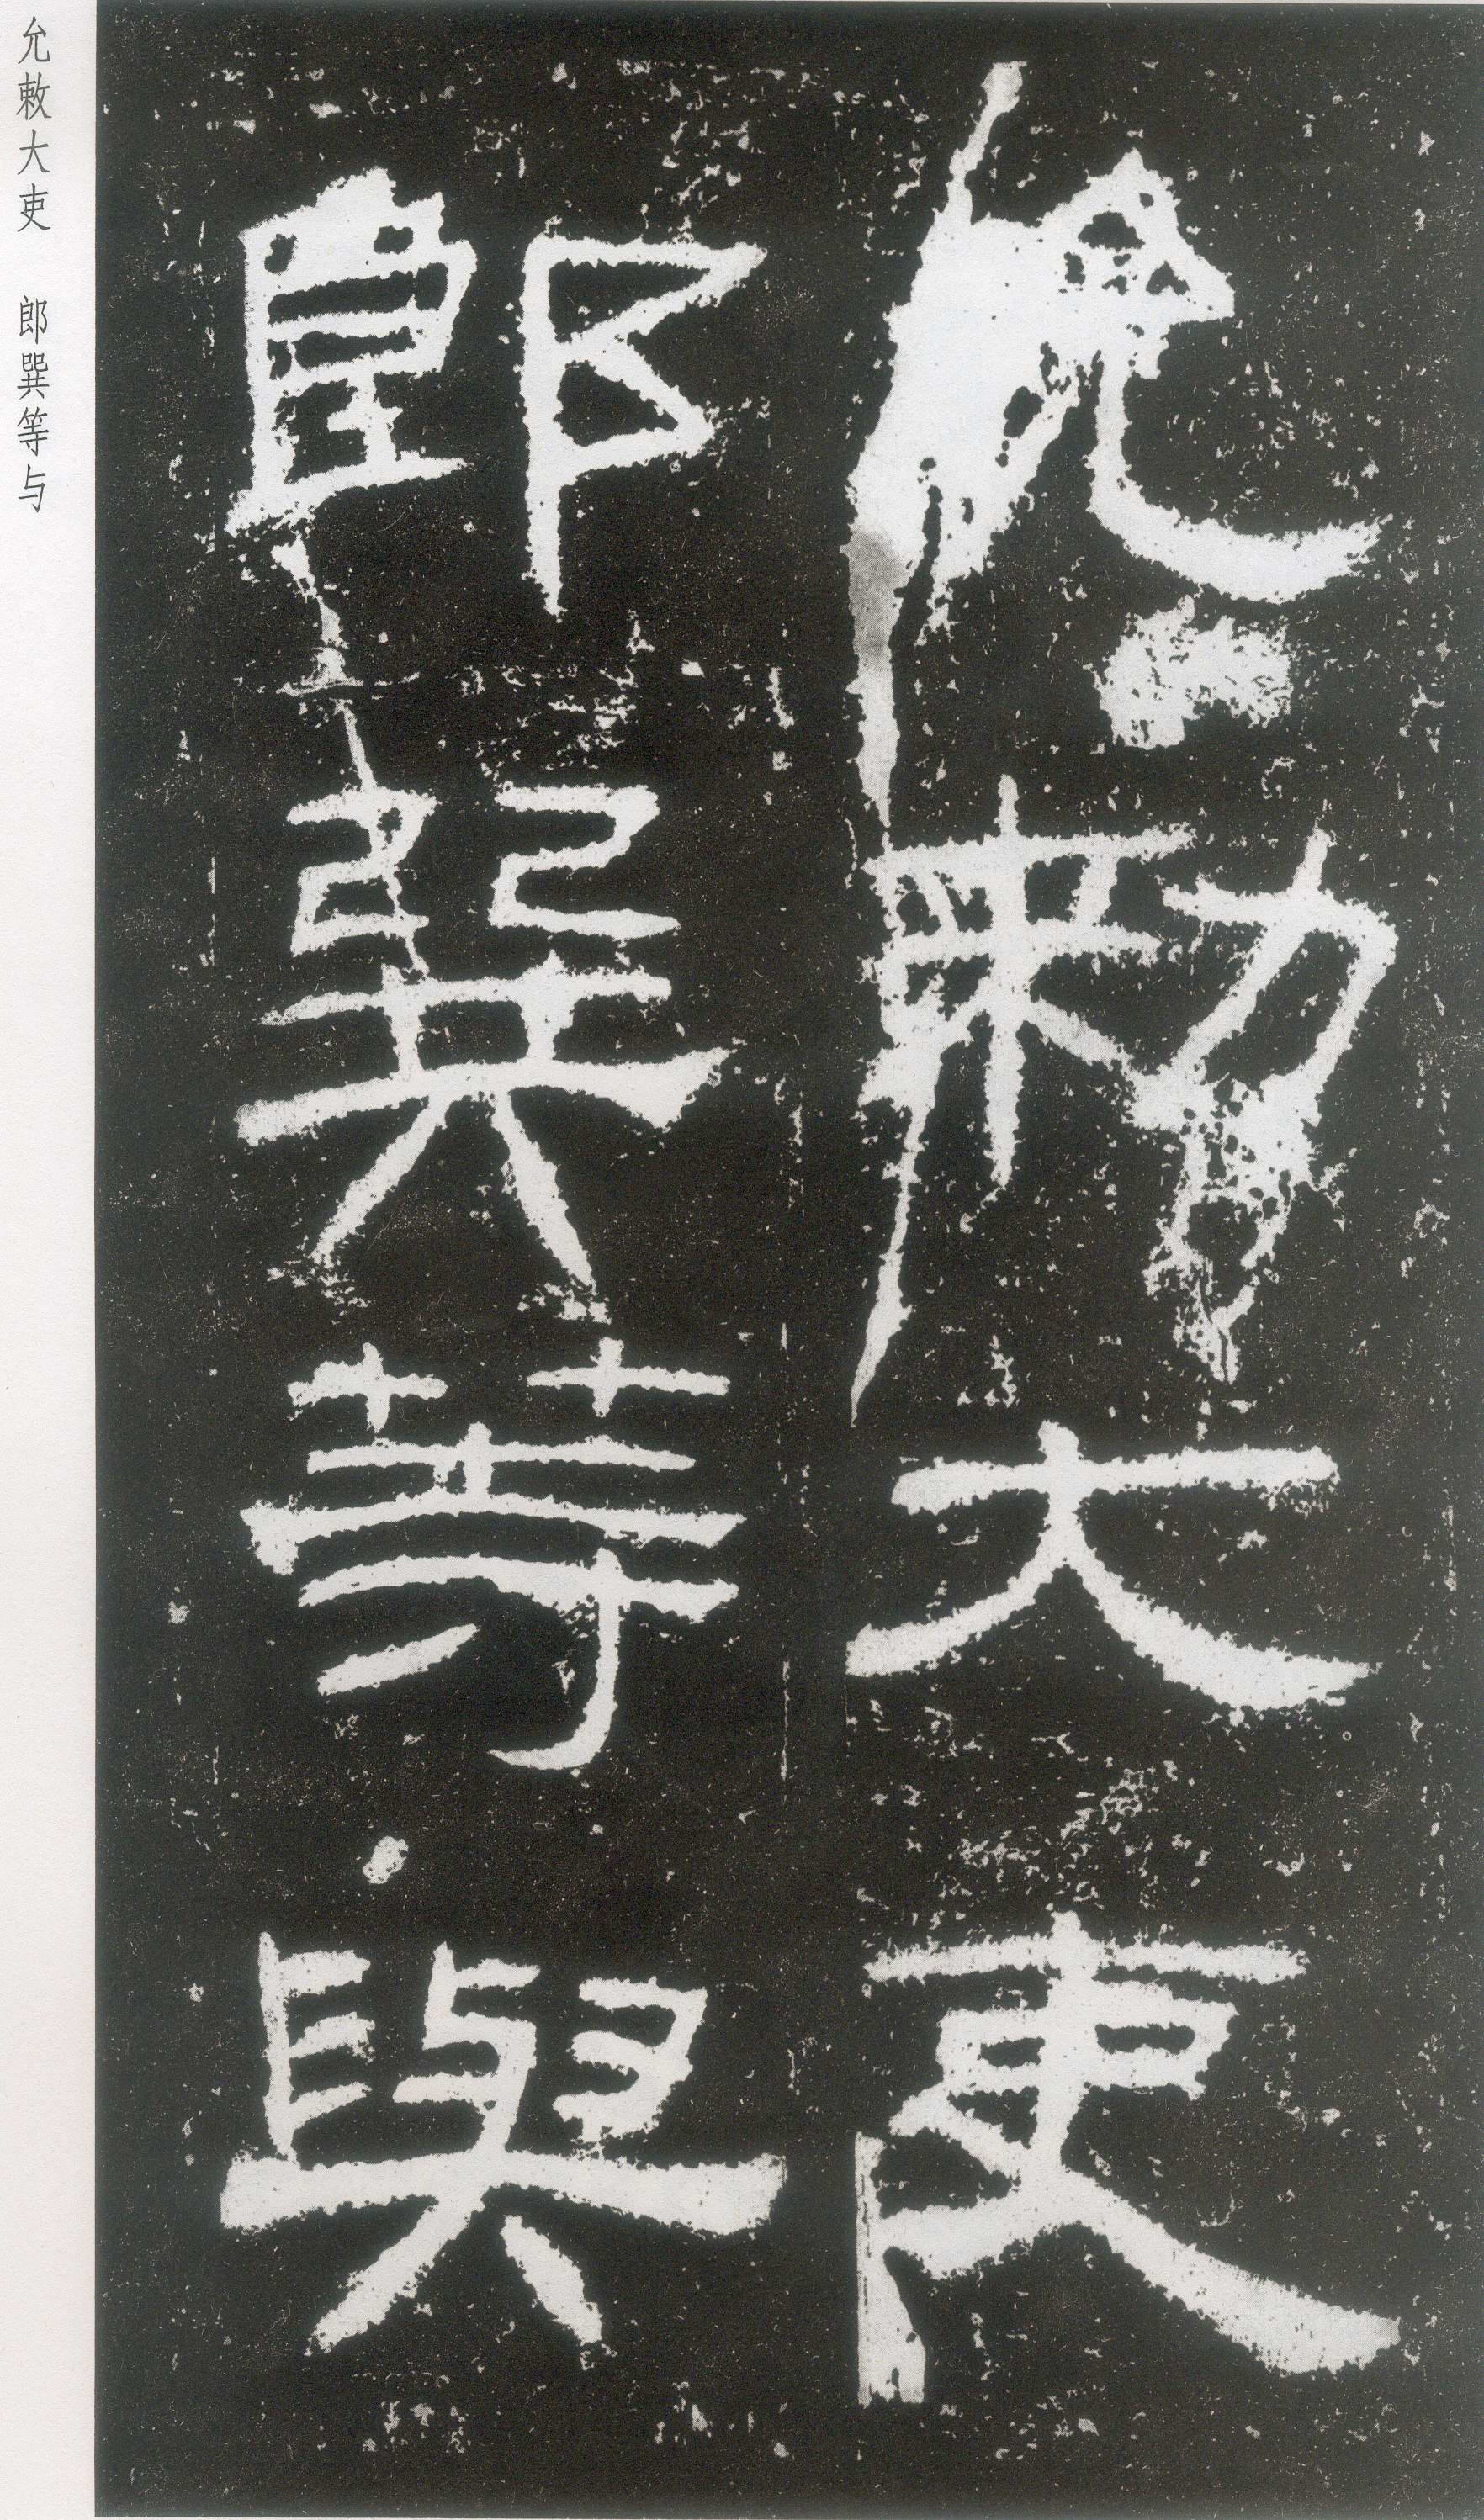 允勑大吏
郎巽等與
允敕大吏 郎巽等与